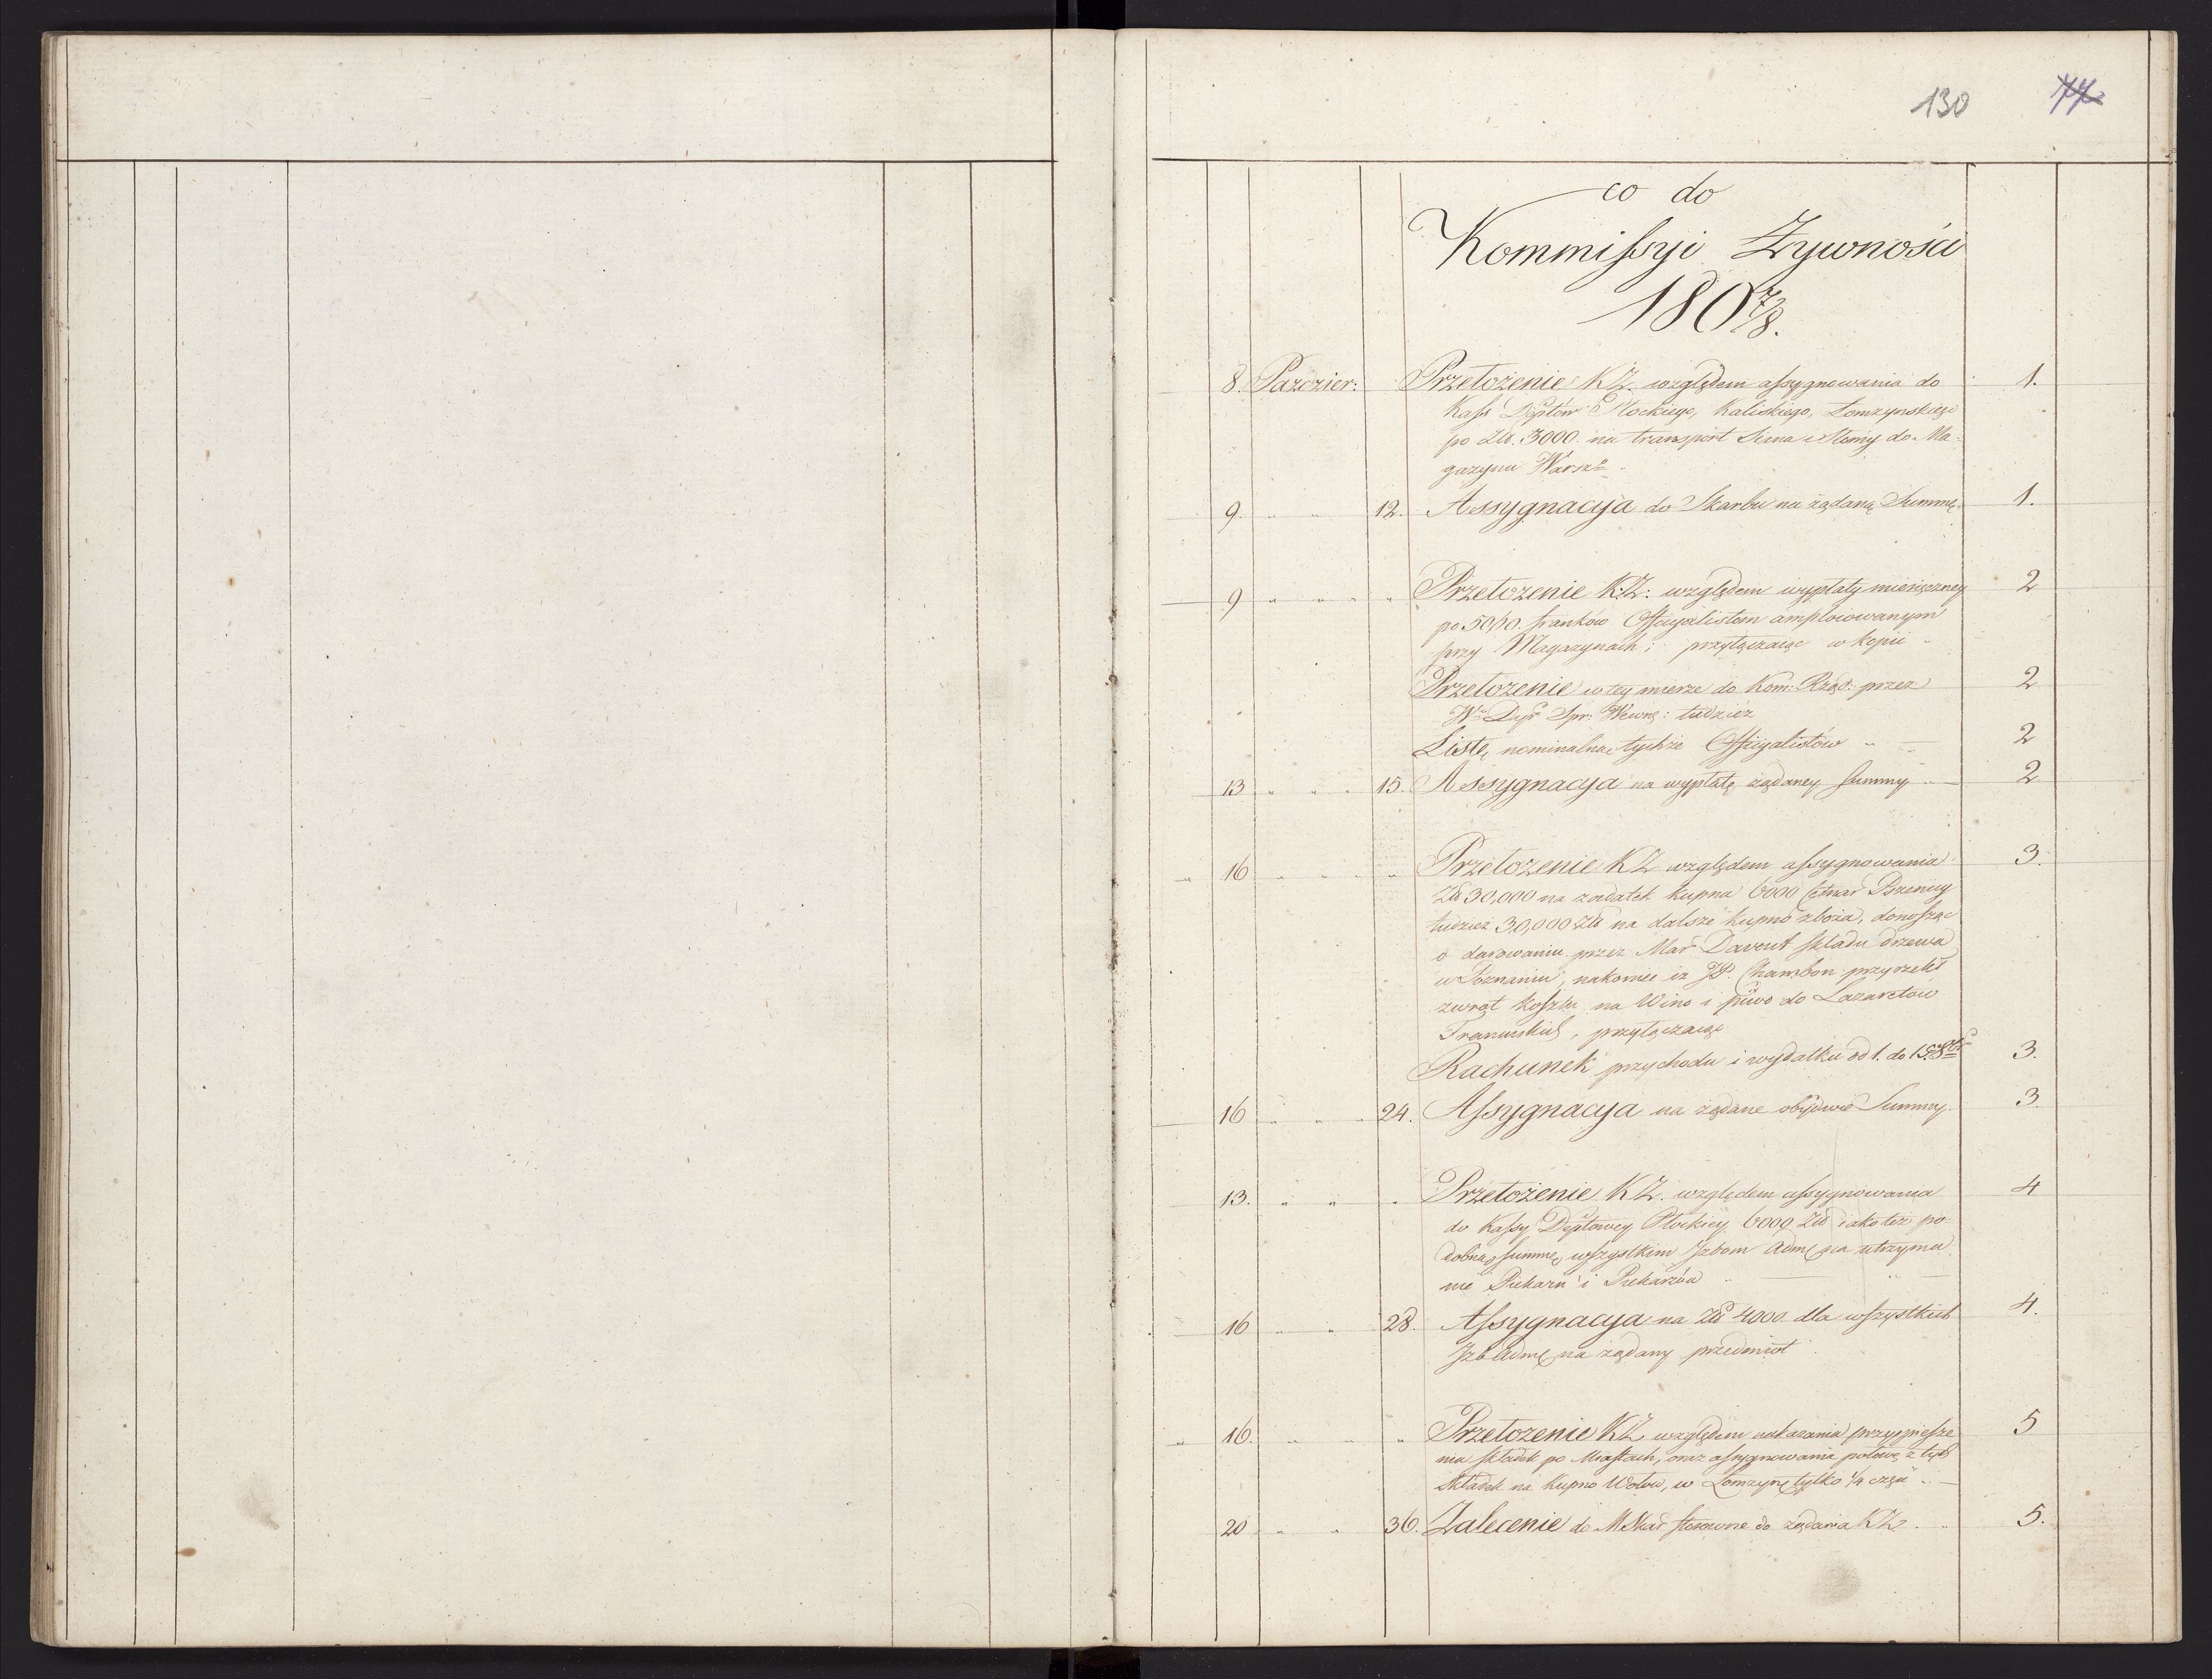 130 77
co do
Kommissyi Zywności
1807/8.
8. Pazdzier: Przełożenie KZ. względem assygnowania do 1.
Kass Deptów Płockiego, Kaliskiego, Łomzynskiego
po Złł. 3000. na transport Siana i Słomy do Ma-
gazynu Warszo
9. " " 12. Assygnacyja do Skarbu na żądaną Summę. 1.
9 " " " " Przełozenie K:Z: względem wypłaty miesięczney 2
po franków Officyalistom amploiowanym
przy Magazynach; przyłączaiąc w kopii
Przełozenie w tey mierze do Kom: Rząd: przez 2
Wo Dyra Spr: Wewnę: tudzież
Listę nominalną tychże Officyalistów " " 2
13 " " " 15. Assygnacyja na wypłatę żądaney Summy 2
" 16 " " " " Przełozenie KZ względem assygnowania 3.
Złł 30,000 na zadatek kupna 6000 Cetnar Pszenicy
tudzież 30,000 Złł na dalsze kupno zboża, donosząc
o darowaniu przez Mar Davout składu drzewa
w Poznaniu, nakoniec iz JP. Chambon przyrzekł
zwrot kosztu na Wino i piwo do Lazaretow
Francuskich, przyłączaiąc
Rachunek przychodu i wydatku od 1. do 15. 8br 3.
16 " " " 24. Assygnacya na żądane obydwie Summy. 3.
13. " " " Przełożenie KZ. względem assygnowania 4
do Kassy Deptowey Płockiey 6000 Złł iako też po-
dobną Summę wszystkim Izbom Adm: na utrzyma
nie Piekarń i Piekarzów " "
16 " " 28. Assygnacya na Złł 4000 dla wszystkich 4.
Izb Admę na żądany przedmiot
" 16. " " " " Przełozenie KZ względem nakazania przyspiesze 5
nia składek po Miastach, oraz assygnowania połowę z tych
Składek na kupno Wołow, w Łomzyńę tylko 1/4 częśc
20 " " 36. Zalecenie do MSkar stosowne do żądania KZ. " 5.